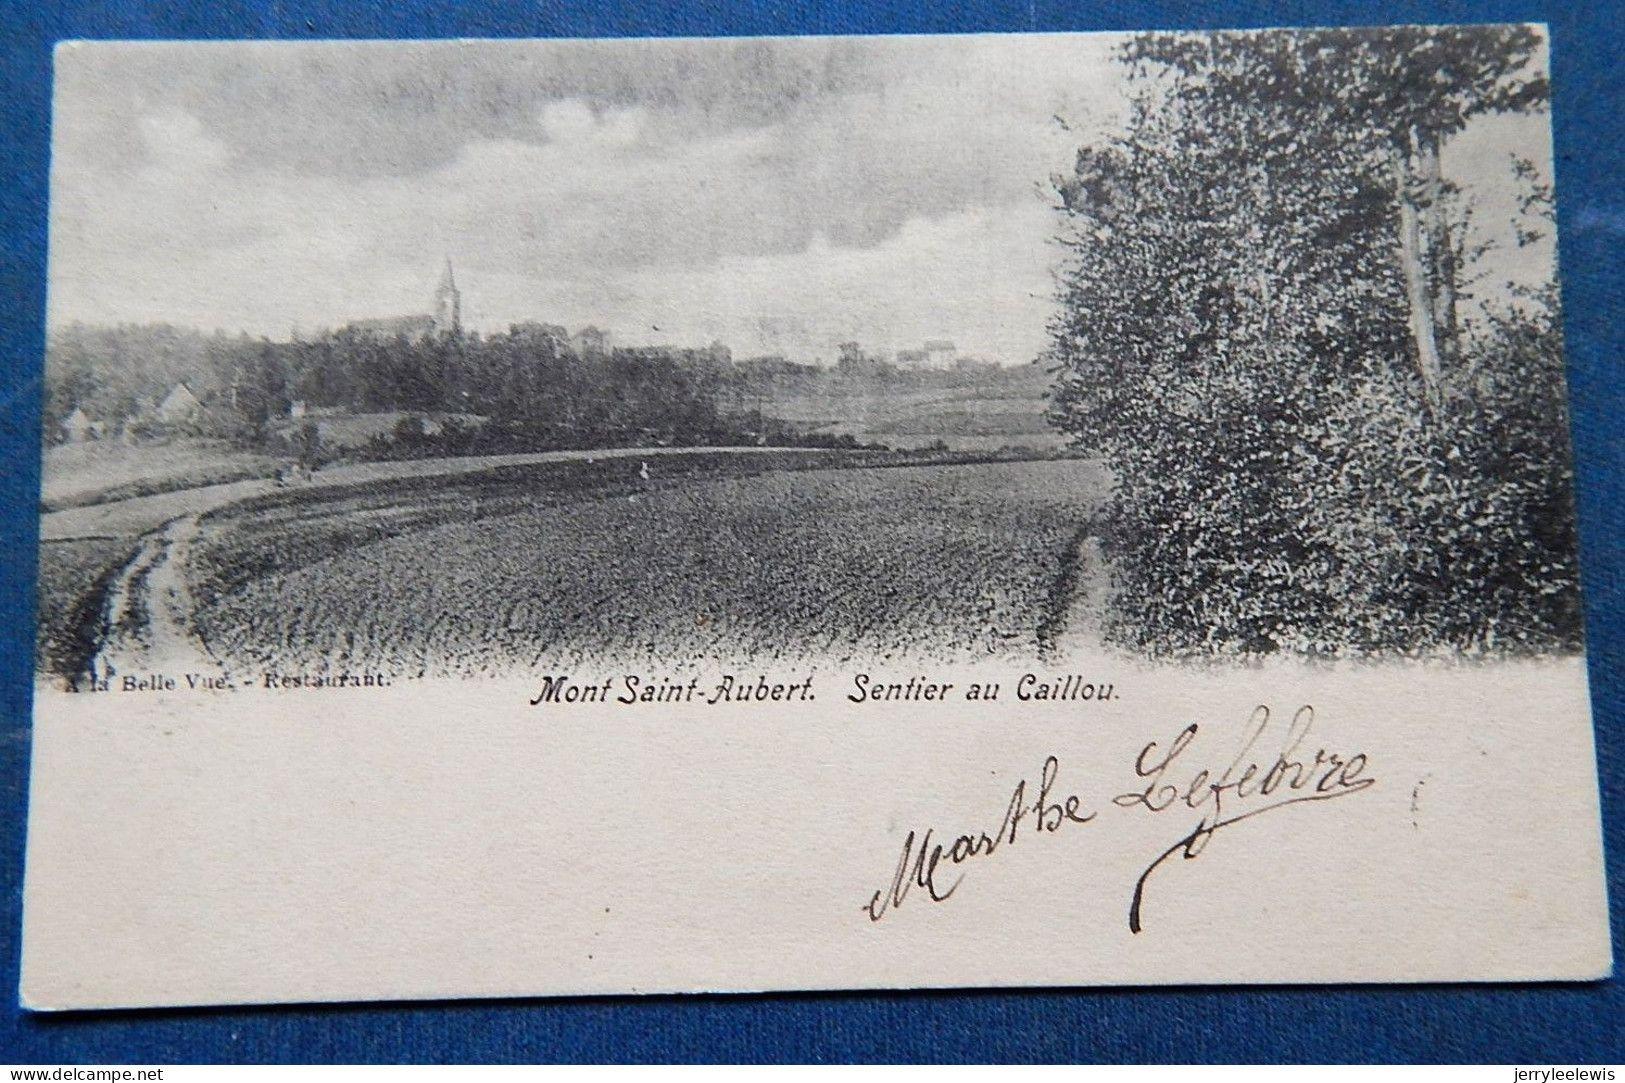 A la Belle Vue. - Restaurant.
Mont Saint-Aubert. Sentier au Caillou.
Marthe Lefebvre
www.delcampe.net
jerryleelewis